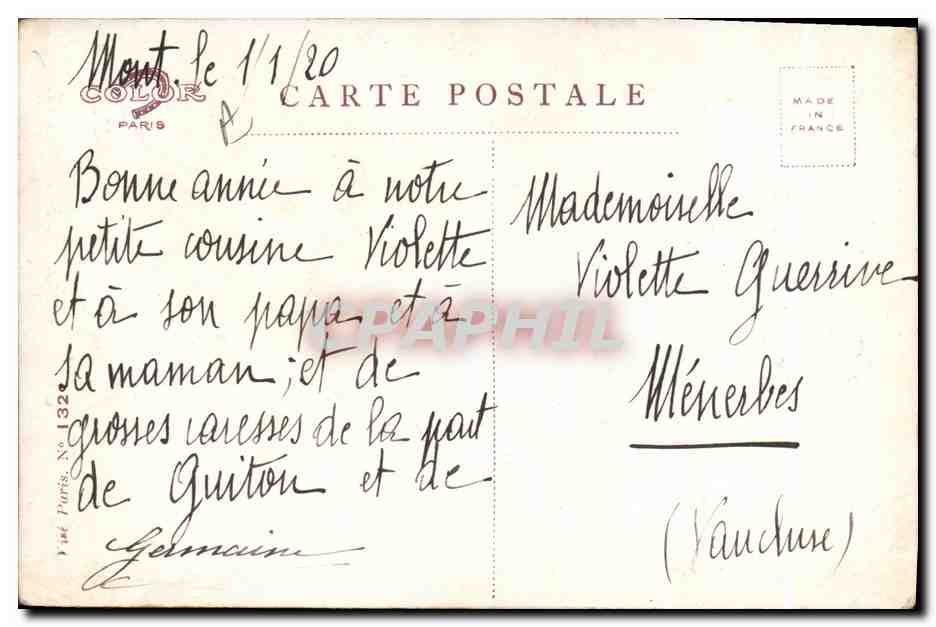 Mont. le 1/1/20
COLOR
PARIS
CARTE POSTALE
MADE
IN
FRANCE
Bonne année à notre
petite cousine Violette
et à son papa et à
sa maman ; et de
grosses caresses de la part
de Guiton et de
Germaine
Mademoiselle
Violette Guerrive
Ménerbes
(Vaucluse)
Visé Paris. No 132
CPAPHIL